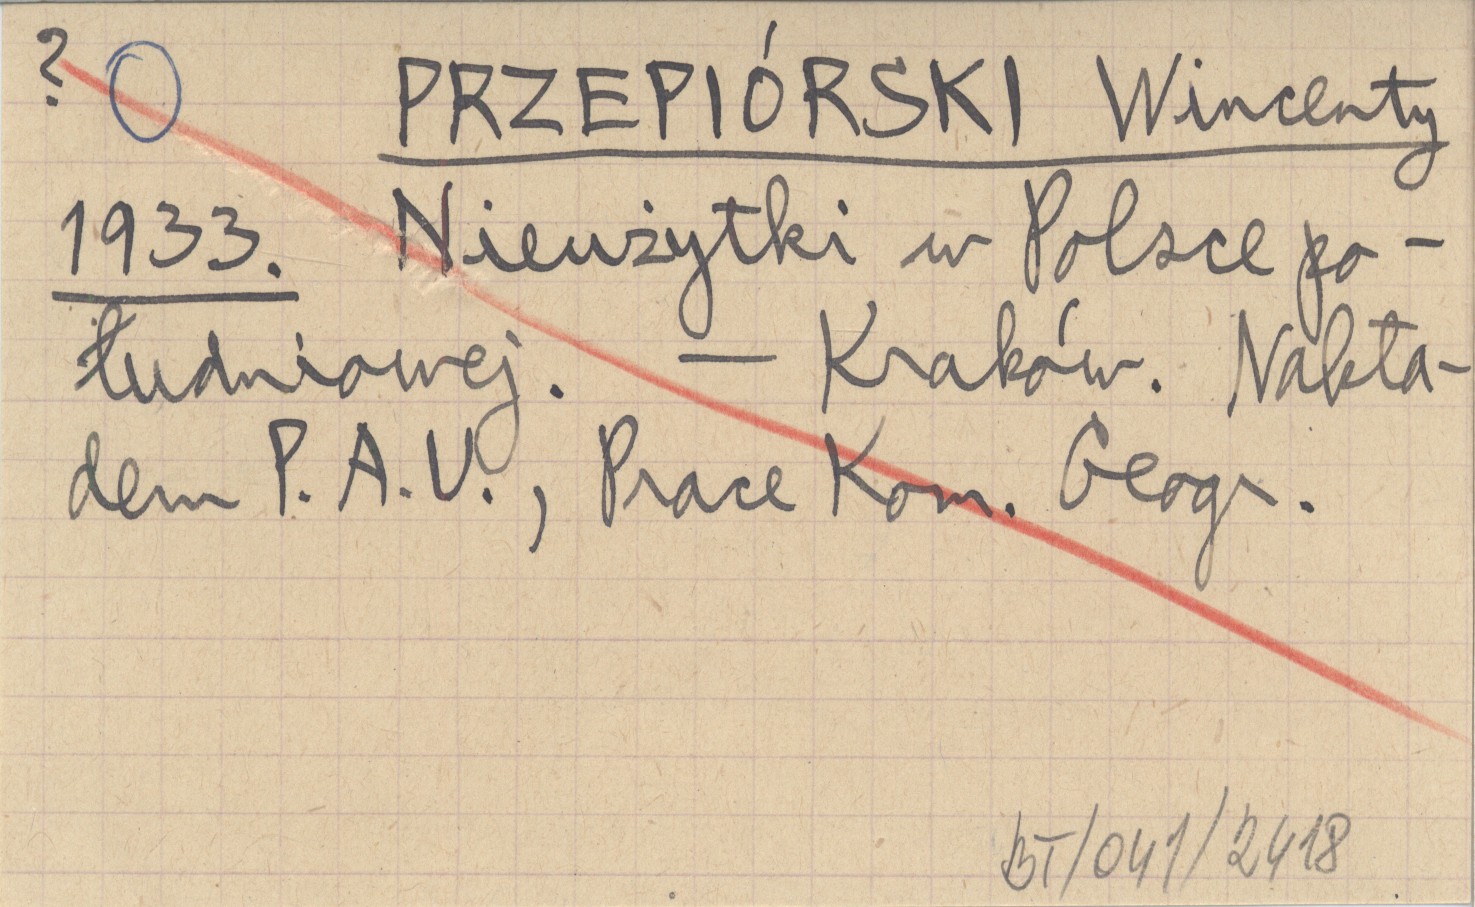 ? PRZEPIÓRSKI Wincenty
1933. Nieużytki w Polsce po-
łudniowej. — Kraków. Nakła-
dem P. A. U., Prace Kom. Geogr.
BT/041/2418